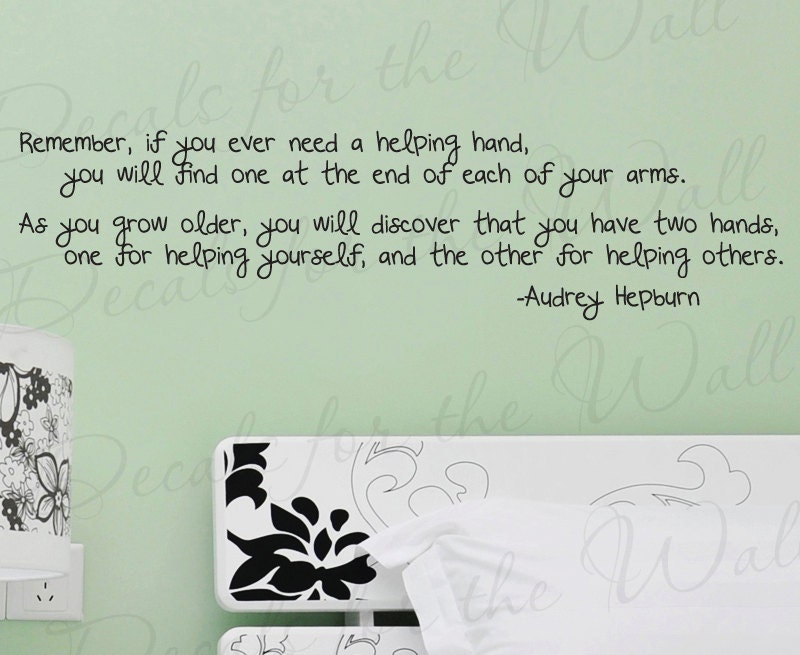 Remember, if you ever need a helping hand,
you will find one at the end of each of your arms.
As you grow older, you will discover that you have two hands,
one for helping yourself, and the other for helping others.
-Audrey Hepburn
Decals for the Wall
Decals for the Wall
Decals for the Wall
Decals for the Wall